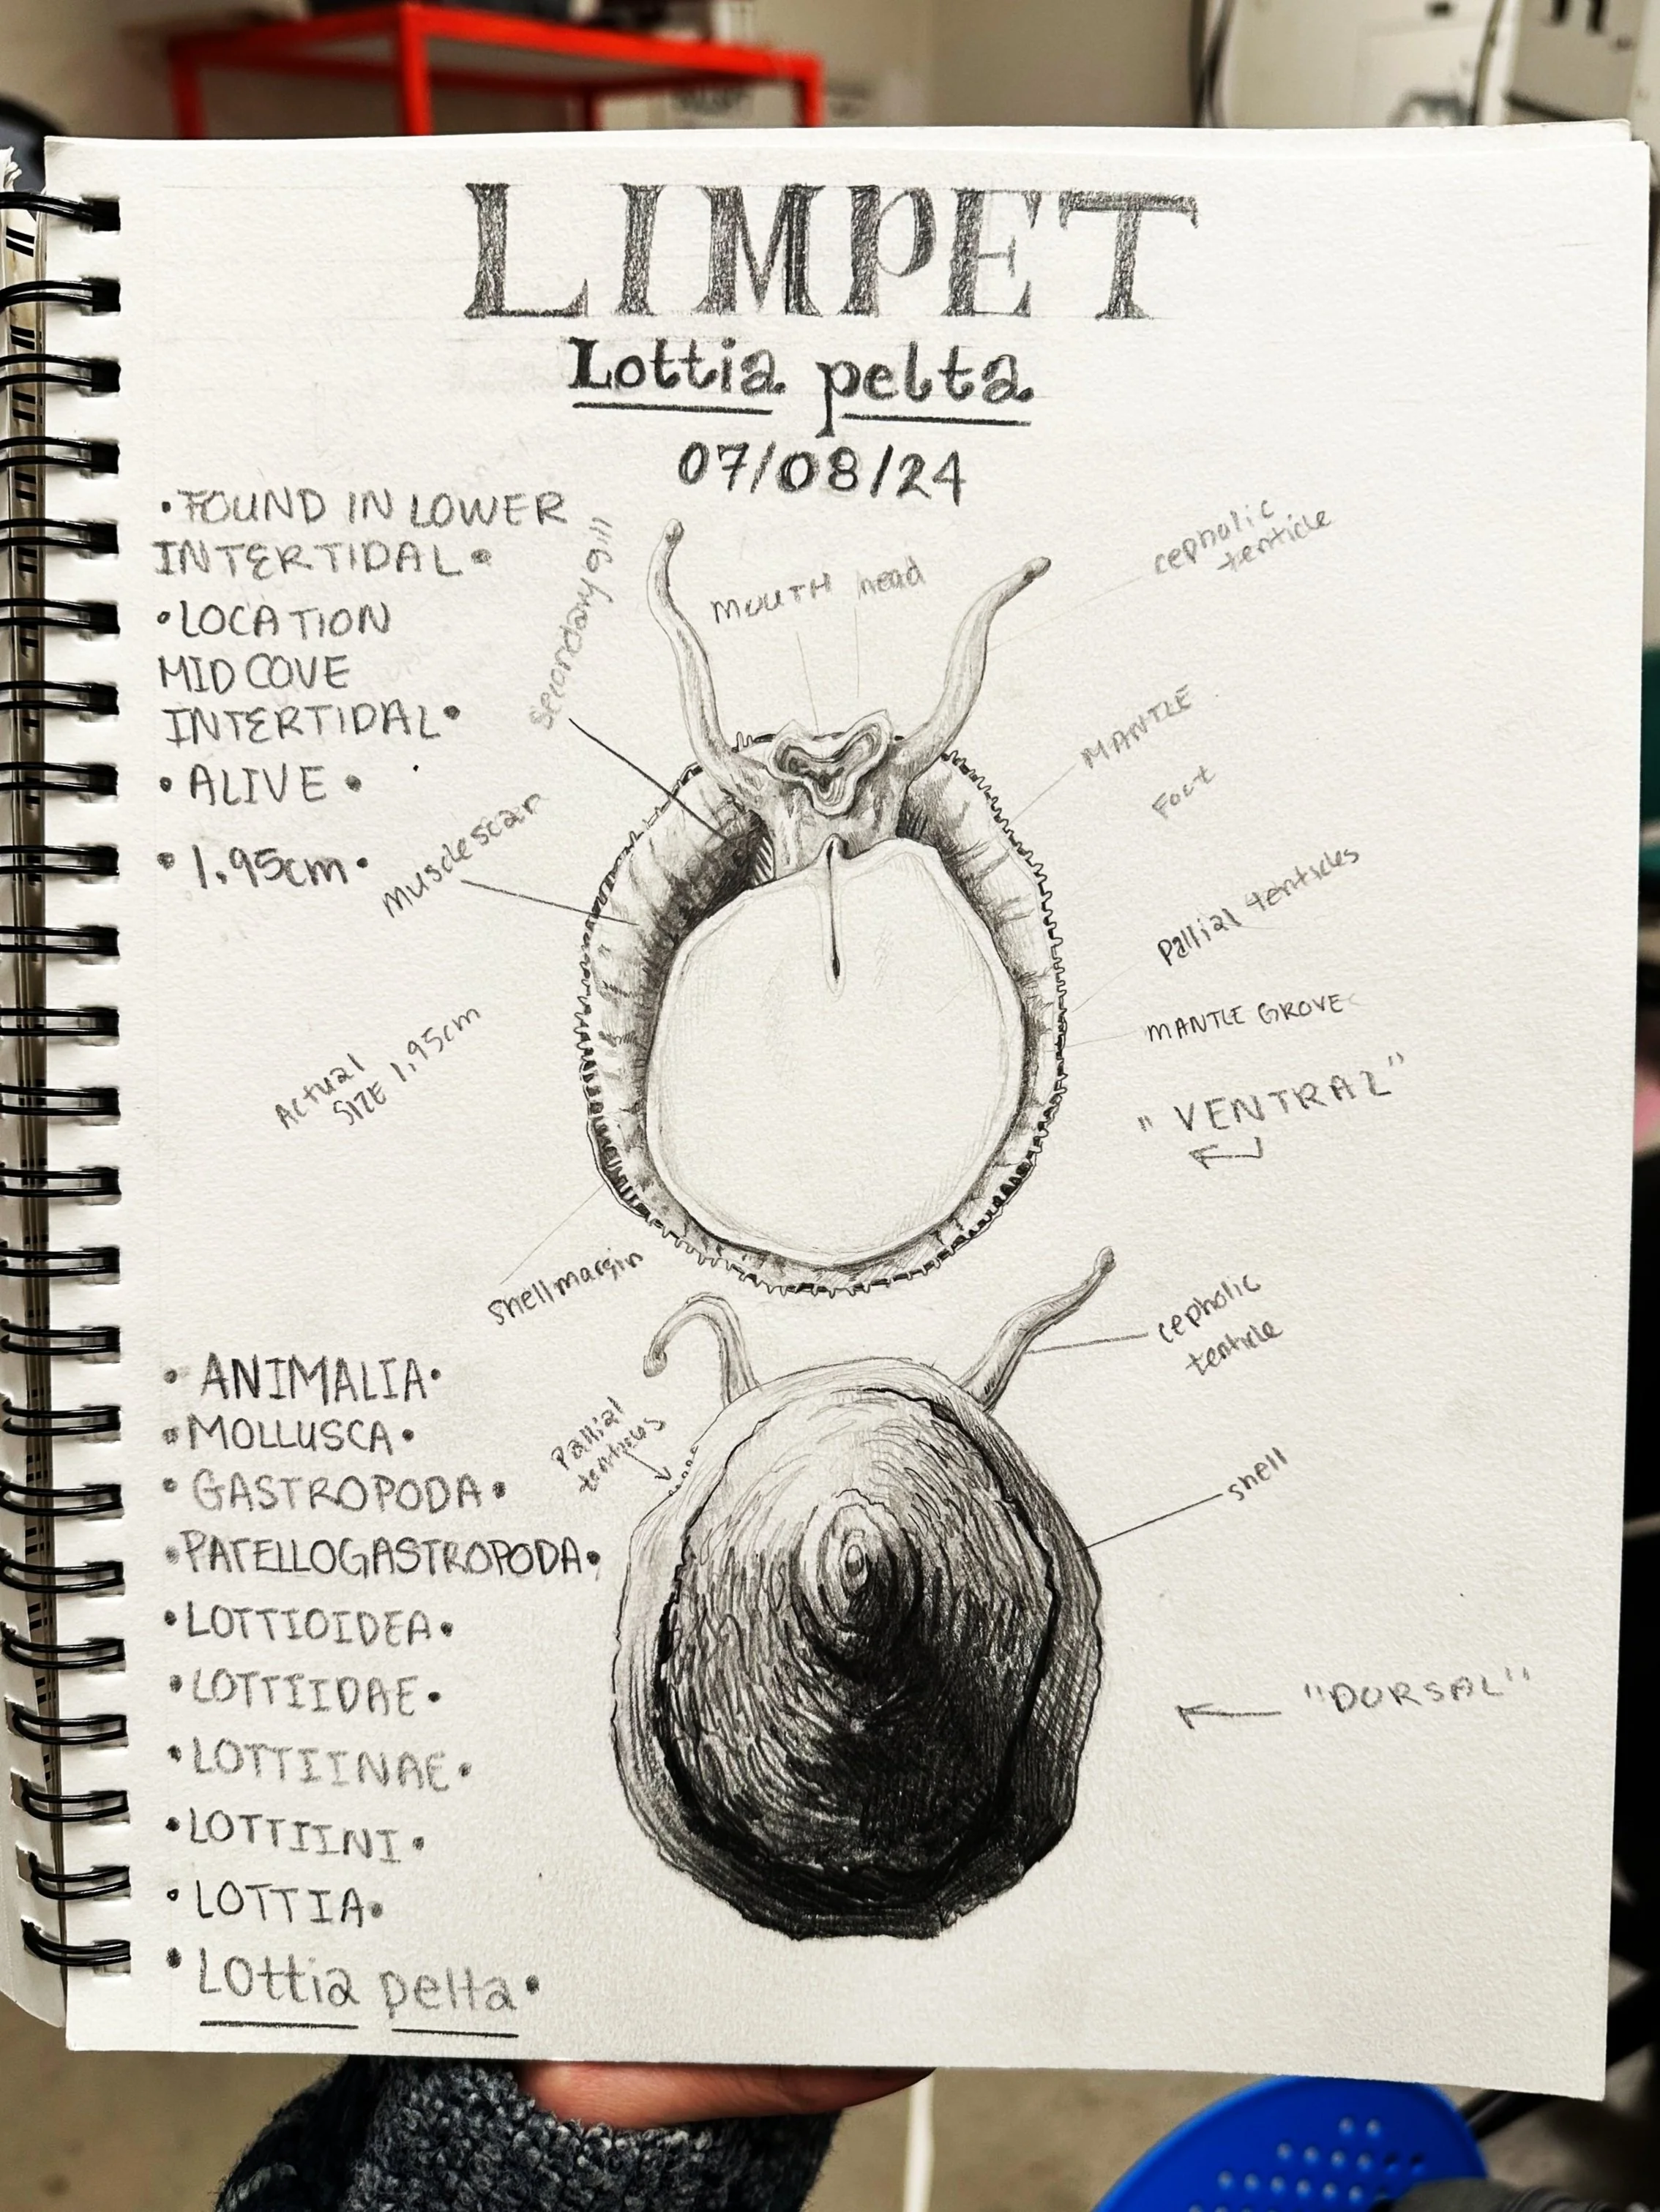 LIMPET
Lottia pelta
07/08/24
•FOUND IN LOWER
INTERTIDAL•
•LOCATION
MID COVE
INTERTIDAL•
•ALIVE•
•1.95cm•
secondary gill
MOUTH
head
cepholic
tenticle
MANTLE
Foot
muscle scar
Pallial tenticles
MANTLE GROVE
Actual
SIZE 1.95cm
"VENTRAL"
shell margin
cepholic
tenticle
Pallial
tenticles
shell
"DORSAL"
•ANIMALIA•
•MOLLUSCA•
•GASTROPODA•
•PATELLOGASTROPODA•
•LOTTIOIDEA•
•LOTTIIDAE•
•LOTTIINAE•
•LOTTIINI•
•LOTTIA•
•Lottia pelta•